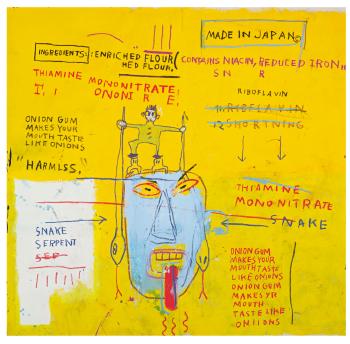 MADE IN JAPAN©
INGREDIENTS: ENRICHED FLOUR (CONTAINS NIACIN, REDUCED IRON,
HED FLOUR, S N R
THIAMINE MONONITRATE
T, I ONONI R E
RIBOFLAVIN
11. RIBOFLAVIN
12 SHORTNING
ONION GUM
MAKES YOUR
MOUTH TASTE
LIKE ONIONS
"HARMLSS."
THIAMINE
MONONITRATE
SNAKE
SNAKE
SERPENT
SEP
ONION GUM
MAKES YOUR
MOUTH TASTE
LIKE ONIONS
ONION GUM
MAKES YR
MOUTH
TASTE LIKE
ONIIONS